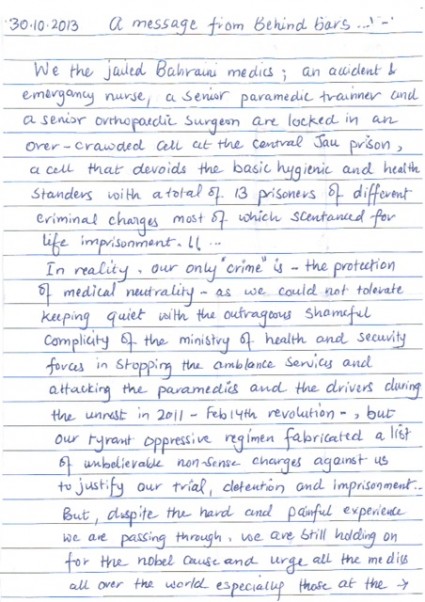 30.10.2013 A message from Behind bars ...!-'
We the jailed Bahraini medics ; an accident &
emergancy nurse, a senior paramedic trainner and
a senior orthopaedic surgeon are locked in an
over-crawded cell at the central Jau prison,
a cell that devoids the basic hygienic and health
standers with a total of 13 prisoners of different
criminal charges most of which scentanced for
life imprisonment. !! ...
In reality, our only "crime" is - the protection
of medical neutrality - as we could not tolerate
keeping quiet with the outrageous shameful
complicity of the ministry of health and security
forces in stopping the amblance services and
attacking the paramedics and the drivers during
the unrest in 2011 - Feb 14th revolution -, but
our tyrant oppressive regimen fabricated a list
of unbelievable non-sense charges against us
to justify our trial, detention and imprisonment..
But, despite the hard and painful experience
we are passing through, we are still holding on
for the nobel cause and urge all the medics
all over the world especially those at the →